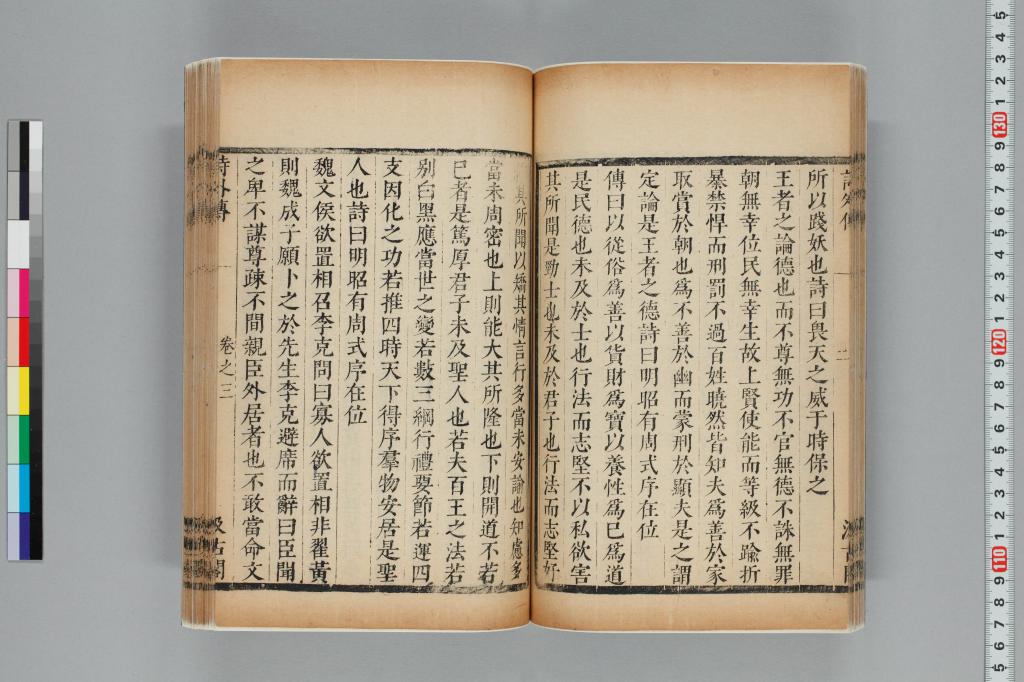 所以踐妖也詩曰畏天之威于時保之
王者之論德也而不尊無功不官無德不誅無罪
朝無幸位民無幸生故上賢使能而等級不踰折
暴禁悍而刑罰不過百姓曉然皆知夫爲善於家
取賞於朝也爲不善於幽而蒙刑於顯夫是之謂
定論是王者之德詩曰明昭有周式序在位
傳曰以從俗爲善以貨財爲寶以養性爲已爲道
是民德也未及於士也行法而志堅不以私欲害
其所聞是勁士也未及於君子也行法而志堅好
其所聞以矯其情言行多當未安諭也知慮多
當未周密也上則能大其所隆也下則開道不若
已者是篤厚君子未及聖人也若夫百王之法若
别白黑應當世之變若數三綱行禮要節若運四
支因化之功若推四時天下得序羣物安居是聖
人也詩曰明昭有周式序在位
魏文侯欲置相召李克問曰寡人欲置相非翟黃
則魏成子願卜之於先生李克避席而辭曰臣聞
之卑不謀尊疎不間親臣外居者也不敢當命文
詩外傳
卷之三
汲古閣